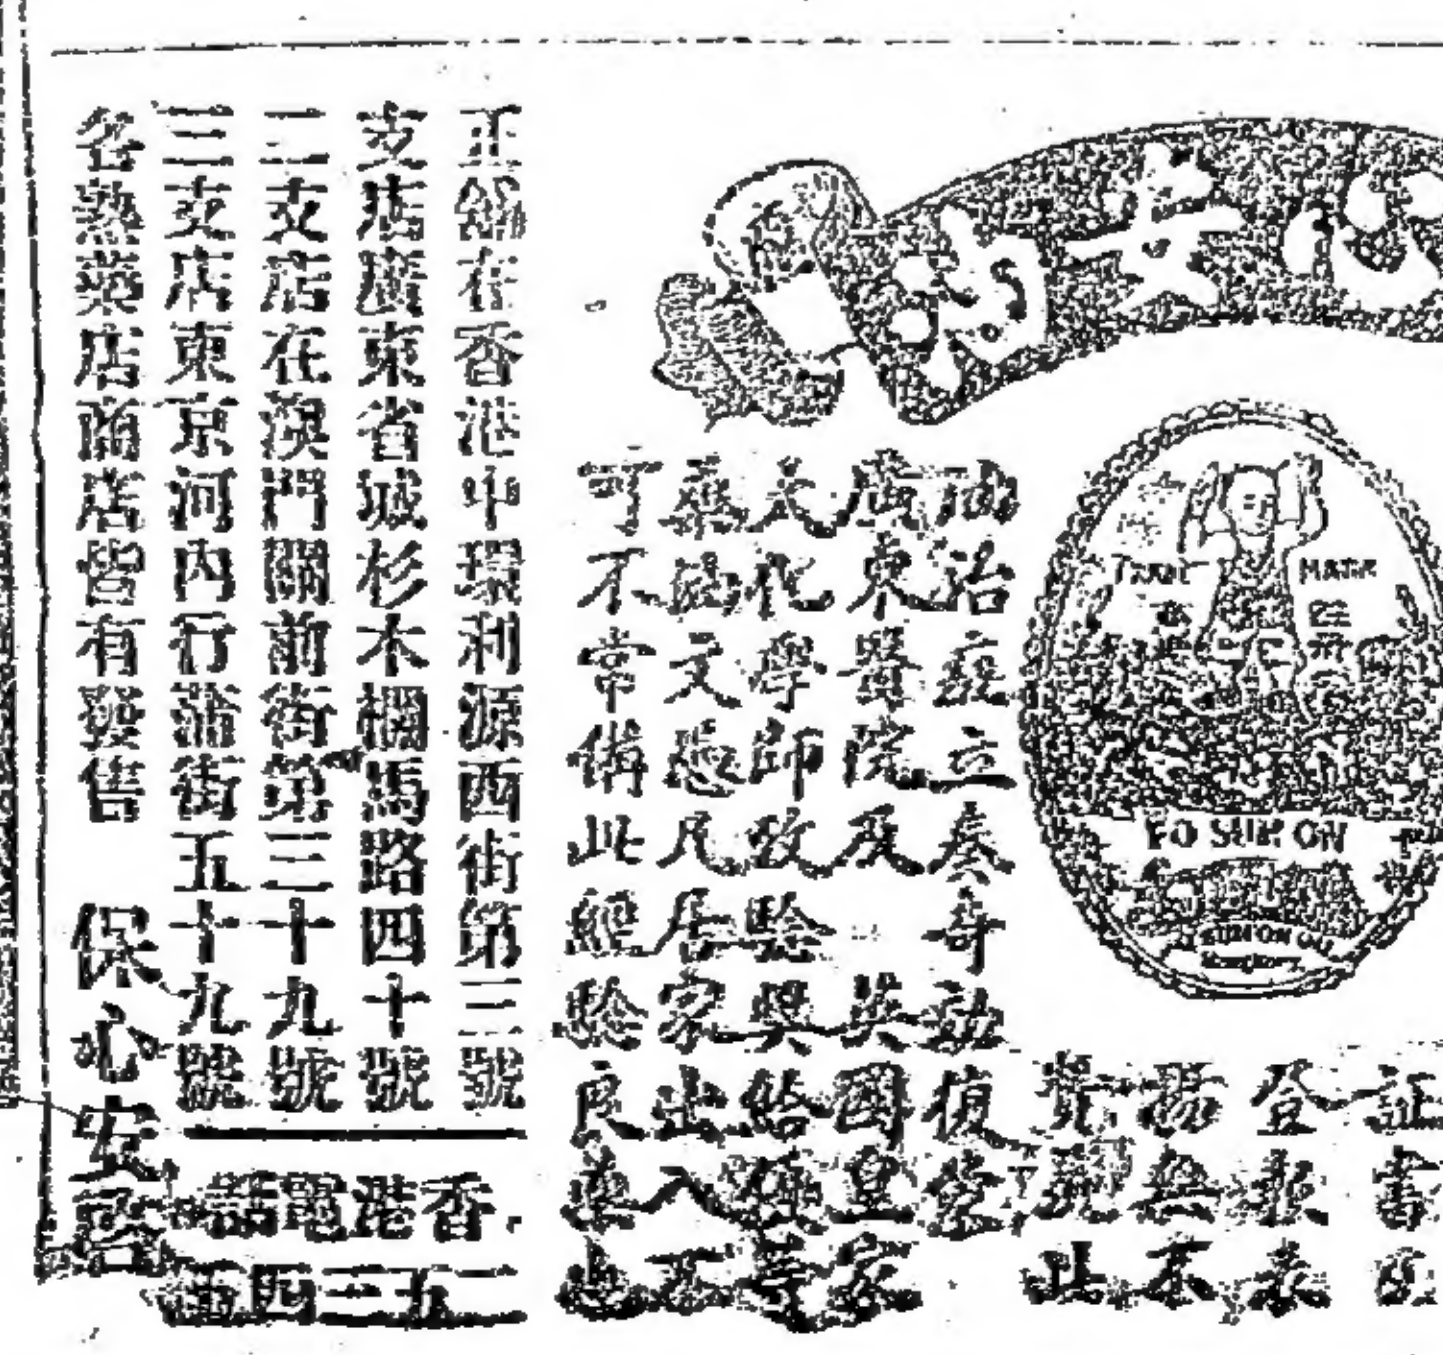 心安油
TRADE MARK
PO SUM ON
Hongkong
証書
登報表
揚無不
油治症立奏奇効復蒙
廣東醫院及 英國皇家
大化學師攷驗與給獎等
文憑凡居家出入不
可不常備此經驗良藥也
正舖在香港中環利源西街第三號
支店廣東省城杉木欄馬路四十號
二支店在澳門關前街第三十九號
三支店東京河內行蒲街五十九號
各熟藥店商店皆有發售 保心安啓
香港電話
二五三四五